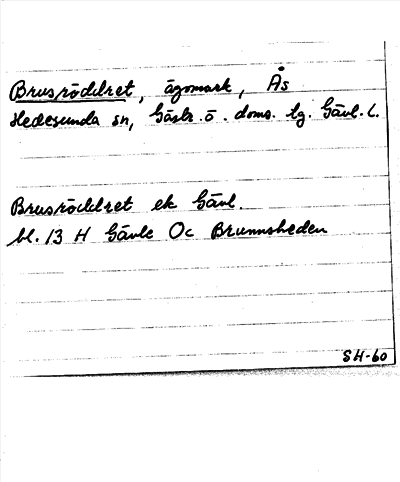 Brusrödlret, ägomark, Ås
Hedesunda sn, Gästr. ö. doms. lg. Gävl. l.
Brusrödlret ek Gävl.
bl. 13 H Gävle Oc Brunnsheden
SH-60